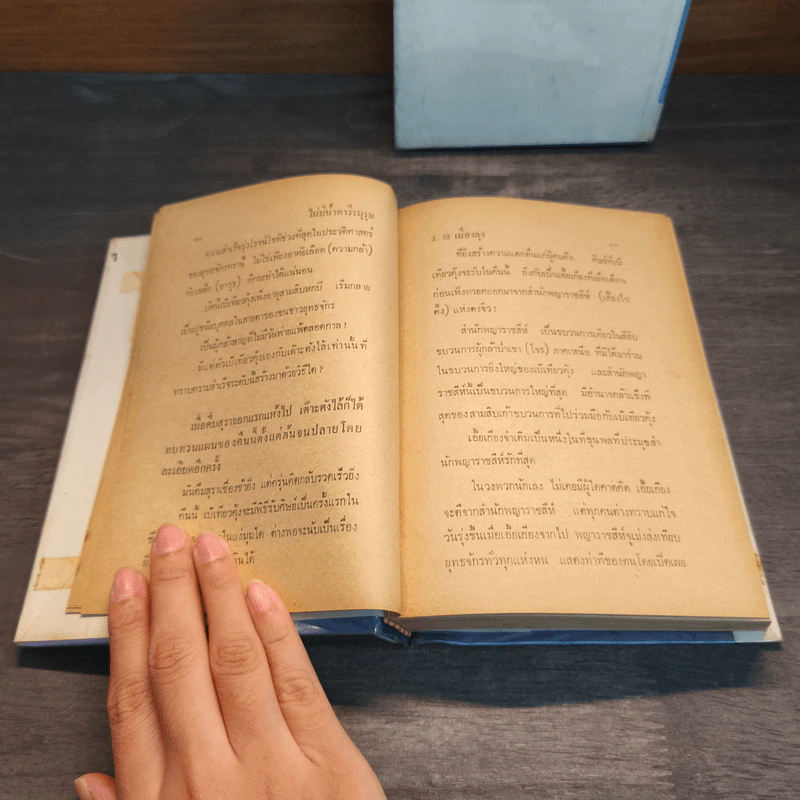 ไม่มีน้ำตาวีรบุรุษ
ความสำเร็จรุ่งโรจน์โชติช่วงที่สุดในประวัติศาสตร์
ของยุทธจักรคราวนี้ ไม่ใช่เพียงอาศัยเลือด (ความกล้า)
กับเหล็ก (อาวุธ) ก็กระทำได้แน่นอน
บัดนี้เบ้เทียวคุ้งเพิ่งอายุสามสิบหกปี เริ่มกลาย
เป็นปูชนียบุคคลในสายตาของชนชาวยุทธจักร
เป็นผู้กล้าหาญที่ไม่มีวันพ่ายแพ้ตลอดกาล !
ที่แต่ตัวเบ้เทียวคุ้งเองกับเต๊าะตังไล้เท่านั้นที่
ทราบความสำเร็จระดับนี้สร้างมาด้วยวิธีใด ?
เมื่อดื่มสุราจอกแรกแห้งไป เต๊าะตังไล้ก็ได้
ทบทวนแผนของคืนนี้ตั้งแต่ต้นจนปลายโดย
ละเอียดอีกครั้ง
มันดื่มสุราเชื่องช้ายิ่ง แต่ครุ่นคิดกลับรวดเร็วยิ่ง
คืนนี้ เบ้เทียวคุ้งจะมีพิธีรับศิษย์เป็นครั้งแรกใน
ในแง่มุมใด ต่างพอจะนับเป็นเรื่อง
ได้
๓. ณ เมืองลุง
ที่ยิ่งสร้างความแตกตื่นแก่ผู้คนคือ ศิษย์ที่เบ้
เทียวคุ้งจะรับในคืนนี้ ยังกับเป็นเอี้ยเกียงที่เมื่อเดือน
ก่อนเพิ่งทรยศออกมาจากสำนักพญาราชสีห์ (เฮี้ยงไซ
ตึ๊ง) แห่งตงจิว !
สำนักพญาราชสีห์ เป็นขบวนการเดียวในสี่สิบ
ขบวนการผู้กล้าป่าเขา (โจร) ภาคเหนือ ที่มิได้มาร่วม
ในขบวนการยิ่งใหญ่ของเบ้เทียวคุ้ง และสำนักพญา
ราชสีห์นี้เป็นขบวนการใหญ่ที่สุด มีอำนาจกล้าแข็งที่
สุดของสามสิบเก้าขบวนการที่ไปร่วมมือกับเบ้เทียวคุ้ง
เอี้ยเกียงจำเดิมเป็นหนึ่งในสี่ขุนพลที่ประมุขสำ
นักพญาราชสีห์รักที่สุด
ในวงพวกนักเลง ไม่เคยมีผู้ใดคาดคิด เอี้ยเกียง
จะตีจากสำนักพญาราชสีห์ แต่ทุกคนต่างทราบแก่ใจ
วันรุ่งขึ้นเมื่อเอี้ยเกียงจากไป พญาราชสีห์จูเม่งส่งเทียบ
ยุทธจักรทั่วทุกแห่งหน แสดงท่าทีของตนโดยเปิดเผย